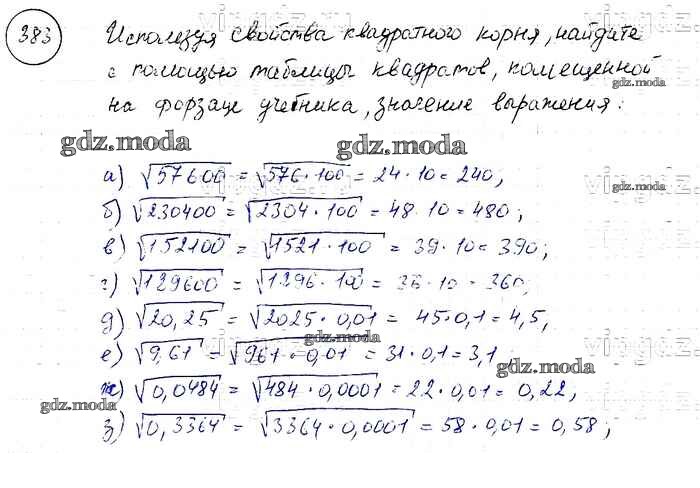 383 Используя свойства квадратного корня, найдите
с помощью таблицы квадратов, помещенной
на форзаце учебника, значение выражения:
gdz.moda gdz.moda
а) √57600 = √576·100 = 24·10 = 240;
б) √230400 = √2304·100 = 48·10 = 480;
в) √152100 = √1521·100 = 39·10 = 390;
г) √129600 = √1296·100 = 36·10 = 360;
д) √20,25 = √2025·0,01 = 45·0,1 = 4,5,
gdz.moda
е) √9,61 = √961·0,01 = 31·0,1 = 3,1
gdz.moda
ж) √0,0484 = √484·0,0001 = 22·0,01 = 0,22,
gdz.moda
з) √0,3364 = √3364·0,0001 = 58·0,01 = 0,58;